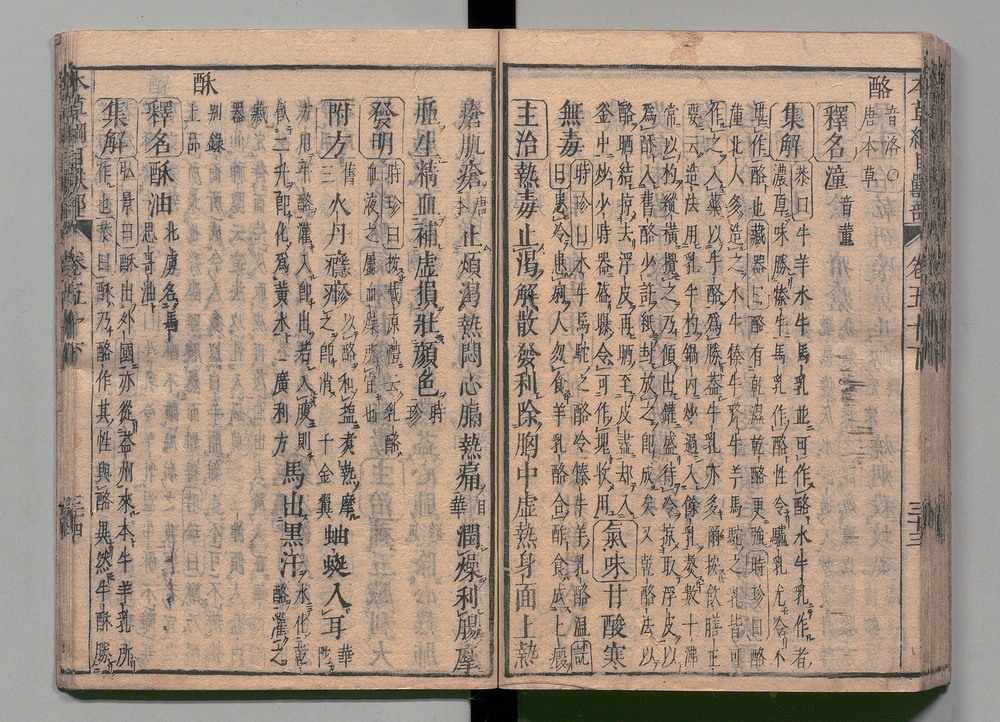 本草綱目獸部 卷五十下 三十三
酪 音洛○唐本草
釋名 湩 音董
集解 恭曰牛羊水牛馬乳並可作酪水牛乳作者
濃厚味勝犛牛馬乳作酪性冷驢乳尤冷不
堪作酪也藏器曰酪有乾濕乾酪更強時珍曰酪
潼北人多造之水牛犛牛羊馬駝之乳皆可
作之入藥以牛酪爲勝蓋牛乳亦多爾按飲膳正
要云造法用乳半杓鍋內炒過入餘乳熬數十沸
常以杓縱橫攪之乃傾出罐盛待冷掠取浮皮以
爲酥入舊酪少許紙封放之卽成矣又乾酪法以
酪晒結掠去浮皮再晒至皮盡却入
釜中炒少時器盛曝令可作塊收用 氣味甘酸寒
無毒 時珍曰水牛馬駝之酪冷犛牛羊乳酪溫詵
曰患冷患痢人勿食羊乳酪合酢食成血瘕
主治熱毒止渴解散發利除胸中虛熱身面上熱
瘡肌瘡唐本止煩渴熱悶心膈熱痛日華潤燥利腸摩
腫生精血補虛損壯顏色時珍
發明 時珍曰按戴原禮云乳酪
血液之屬血燥所宜也
附方舊三 火丹癮疹以酪和鹽煮熱摩之卽消千金翼 蚰蜒入耳華陀
方用牛酪灌入卽出若入腹則
飲二升卽化爲黃水廣利方 馬出黑汗水化乾酪灌之
酥 別錄上品
釋名酥油北虜名馬思哥油
集解 弘景曰酥出外國亦從益州來本牛羊乳所
作也恭曰酥乃酪作其性與酪異然牛酥勝
本草綱目獸部 卷五十下 三十四